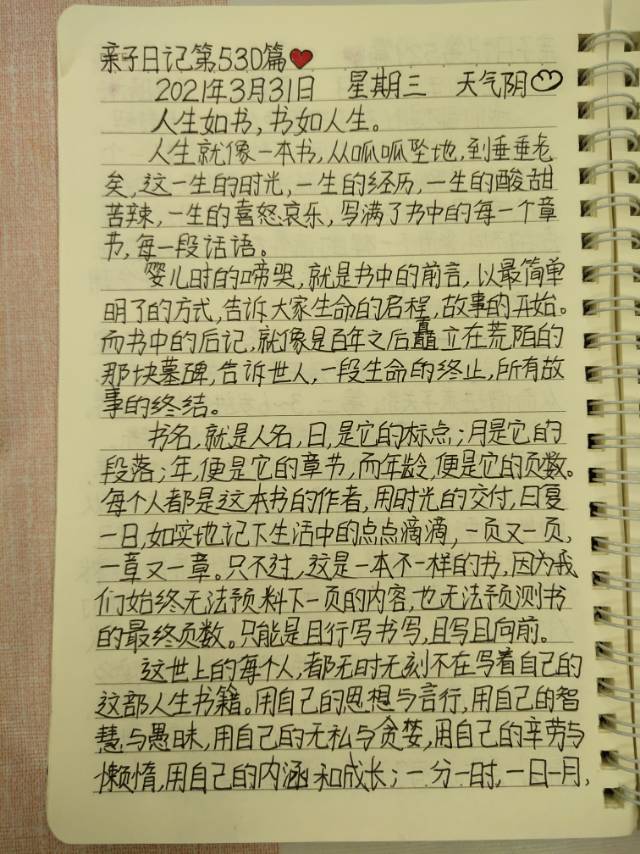 亲子日记第530篇
2021年3月31日 星期三 天气阴
人生如书,书如人生。
人生就像一本书,从呱呱坠地,到垂垂老
矣,这一生的时光,一生的经历,一生的酸甜
苦辣,一生的喜怒哀乐,写满了书中的每一个章
节,每一段话语。
婴儿时的啼哭,就是书中的前言,以最简单
明了的方式,告诉大家生命的启程,故事的开始。
而书中的后记,就像是百年之后矗立在荒陌的
那块墓碑,告诉世人,一段生命的终止,所有故
事的终结。
书名,就是人名,日,是它的标点;月是它的
段落;年,便是它的章节,而年龄,便是它的页数。
每个人都是这本书的作者,用时光的交付,日复
一日,如实地记下生活中的点点滴滴,一页又一页,
一章又一章。只不过,这是一本不一样的书,因为我
们始终无法预料下一页的内容,也无法预测书
的最终页数。只能是且行写书写,且写且向前。
这世上的每个人,都无时无刻不在写着自己的
这部人生书籍。用自己的思想与言行,用自己的智
慧与愚昧,用自己的无私与贪婪,用自己的辛劳与
懒惰,用自己的内涵和成长;一分一时,一日一月,